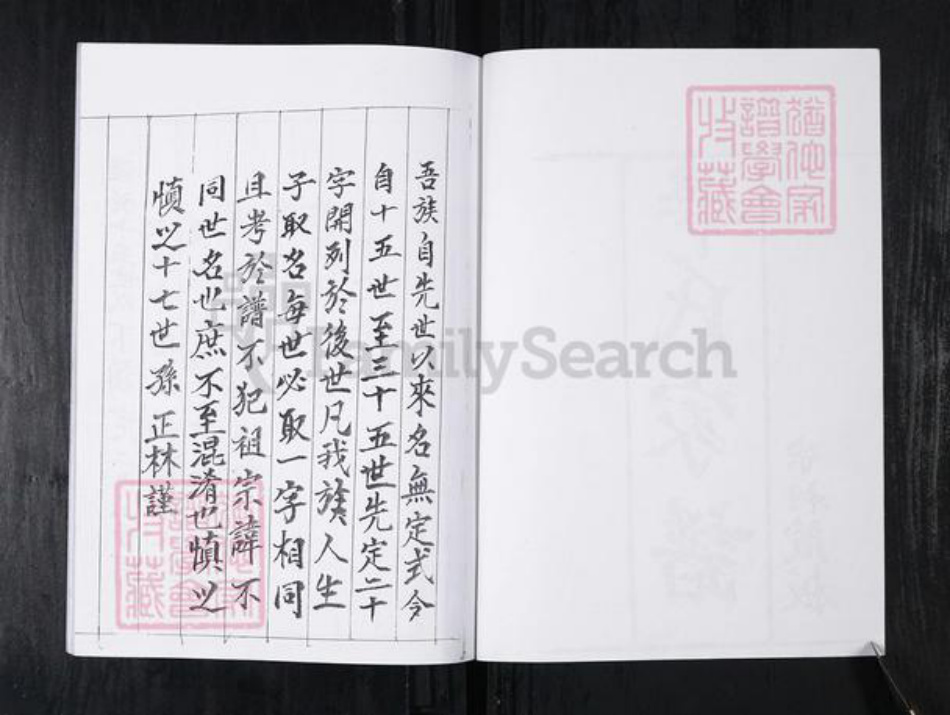 吾族自先世以來名無定式今
自十五世至三十五世先定二十
字開列於後世凡我族人生
子取名每世必取一字相同
且考於譜不犯祖宗諱不
同世名也庶不至混淆也慎以
慎以十七世孫正林謹
猶他家
譜學會
收藏
FamilySearch